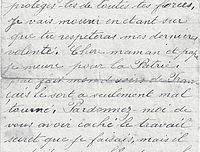 protéges-les de toutes tes forces,
Je vais mourir en étant sur
que tu respecteras mes dernières
volontés. Cher maman et papa
je meurs pour la Patrie.
J'ai fait mon devoir de Fran-
çais le sort a seulement mal
tourné. Pardonnez moi de
vous avoir caché le travail
secret que je faisais, mais il